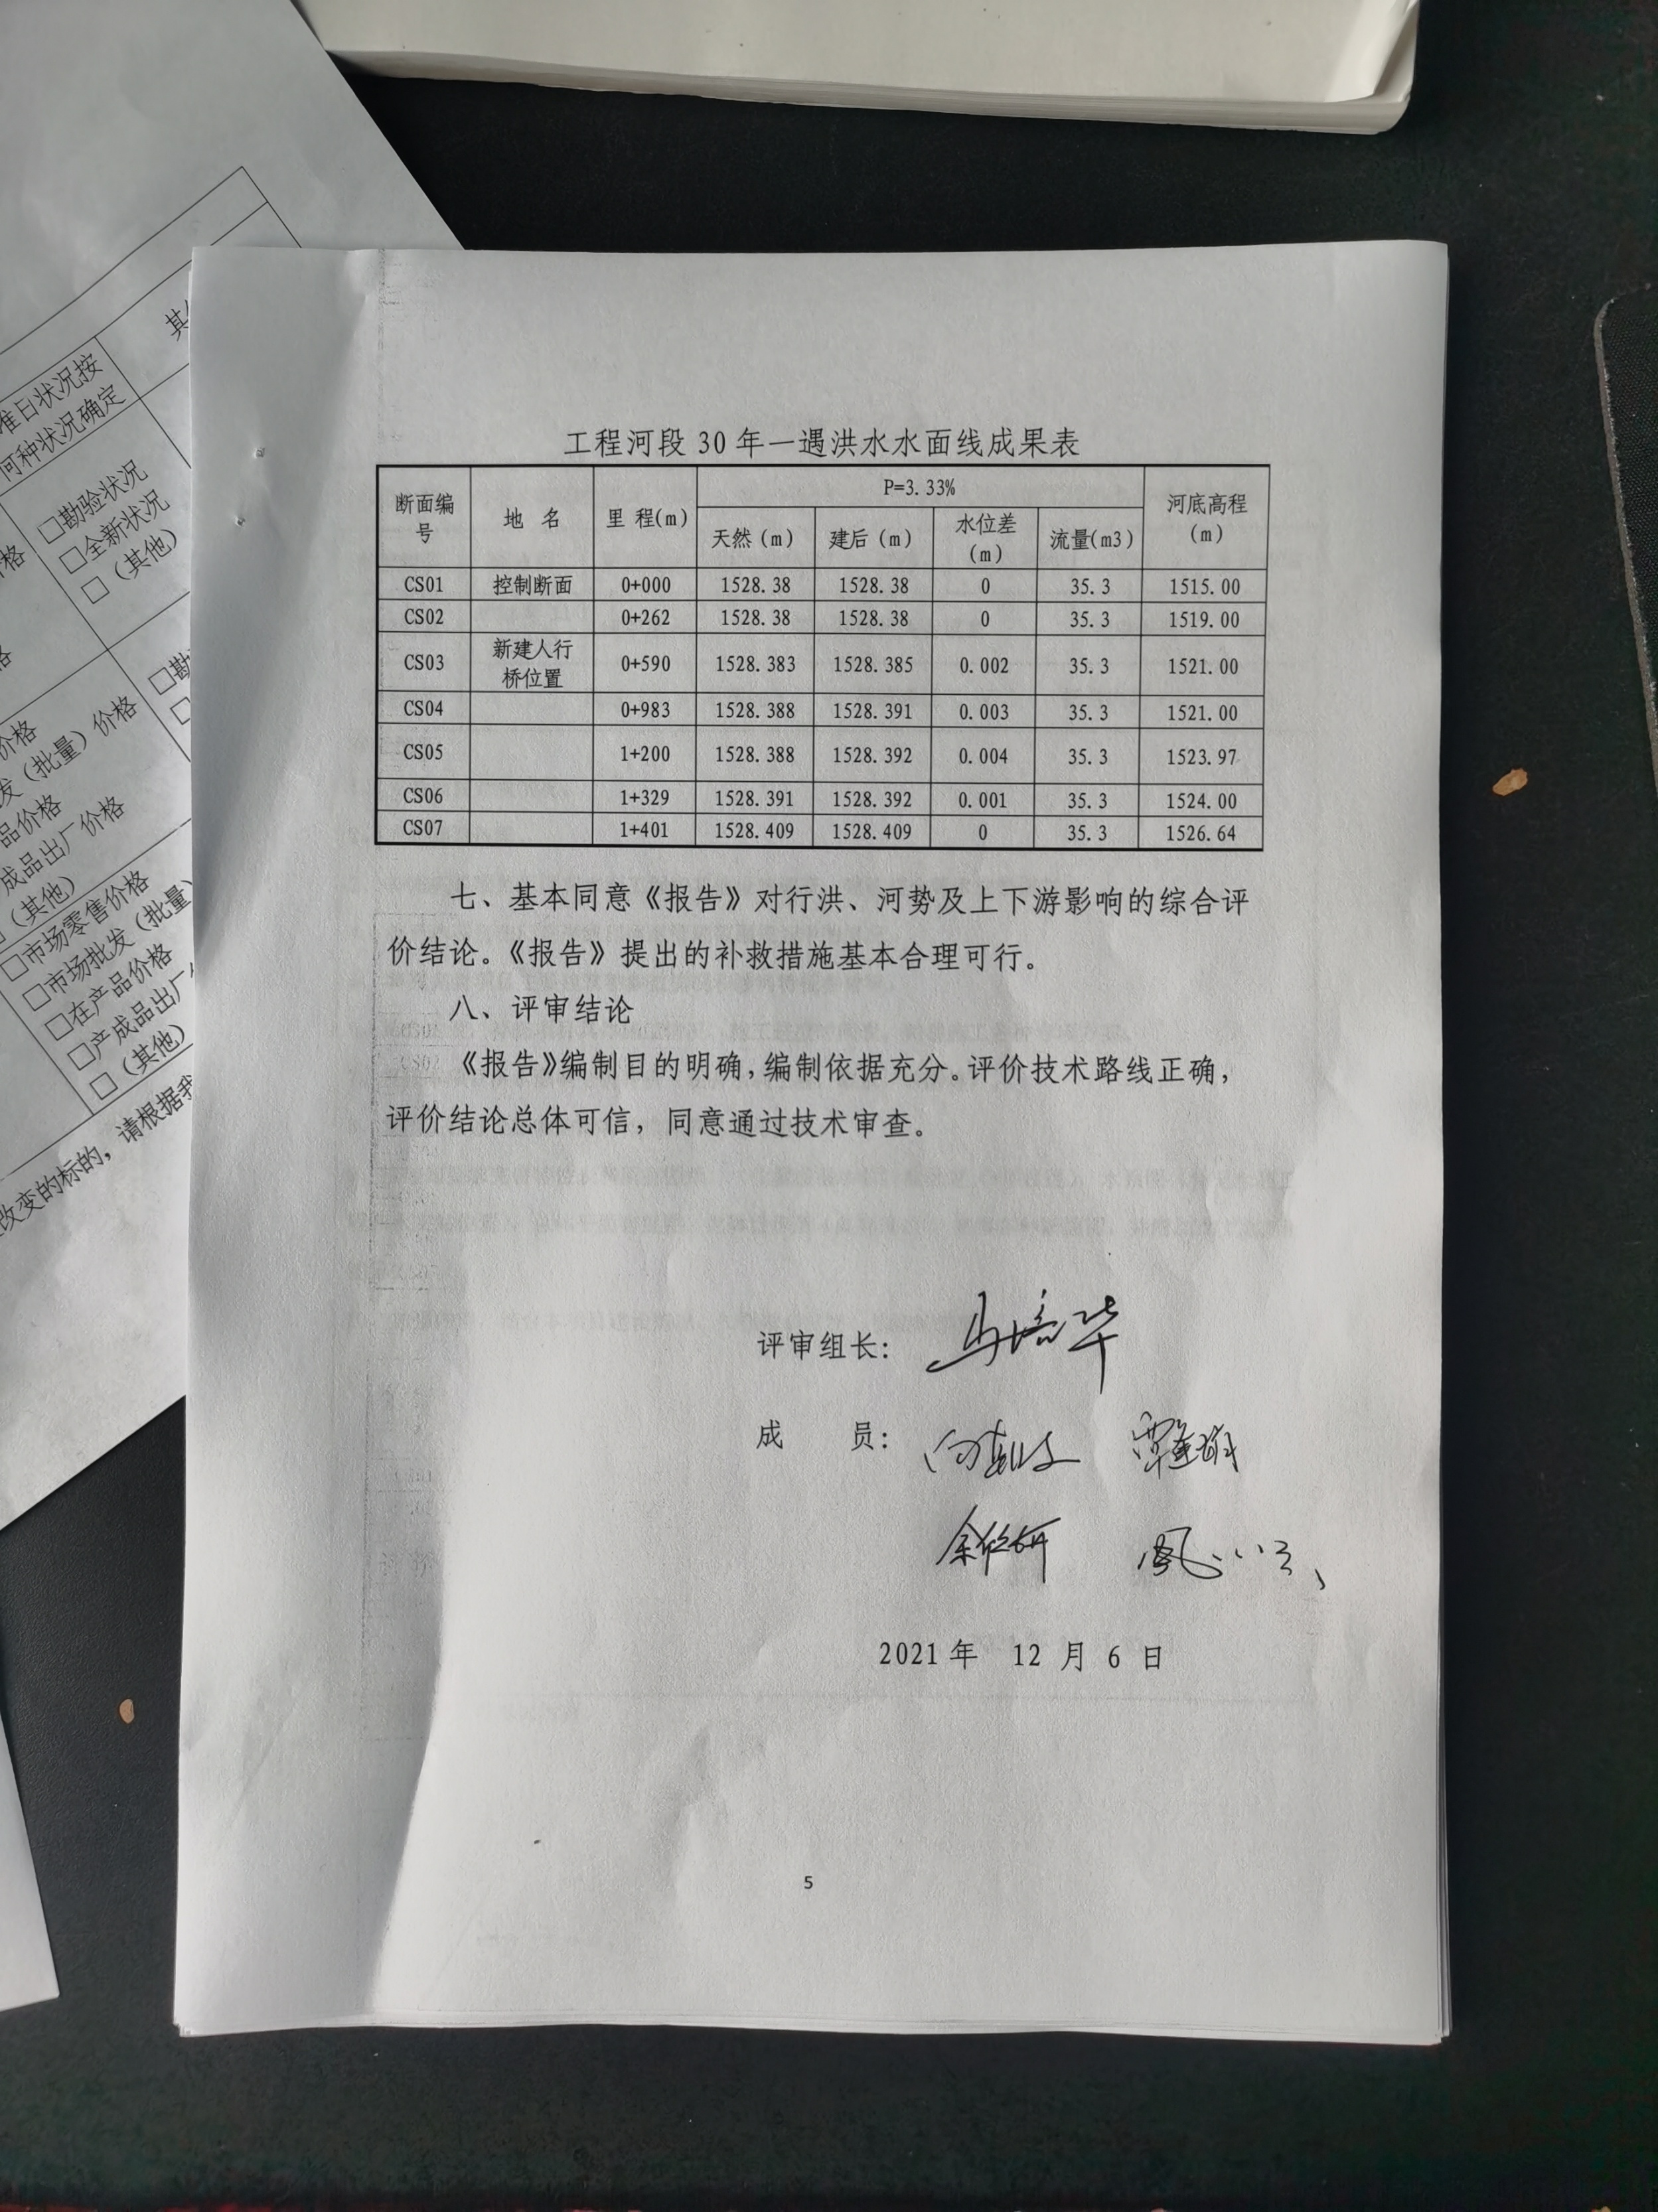 工程河段 30 年一遇洪水水面线成果表
断面编号 地 名 里 程(m) P=3.33% 河底高程(m)
天然(m) 建后(m) 水位差(m) 流量(m3)
CS01 控制断面 0+000 1528.38 1528.38 0 35.3 1515.00
CS02 0+262 1528.38 1528.38 0 35.3 1519.00
CS03 新建人行桥位置 0+590 1528.383 1528.385 0.002 35.3 1521.00
CS04 0+983 1528.388 1528.391 0.003 35.3 1521.00
CS05 1+200 1528.388 1528.392 0.004 35.3 1523.97
CS06 1+329 1528.391 1528.392 0.001 35.3 1524.00
CS07 1+401 1528.409 1528.409 0 35.3 1526.64
七、基本同意《报告》对行洪、河势及上下游影响的综合评
价结论。《报告》提出的补救措施基本合理可行。
八、评审结论
《报告》编制目的明确,编制依据充分。评价技术路线正确,
评价结论总体可信,同意通过技术审查。
评审组长: 马培华
成 员:
2021 年 12 月 6 日
5
准日状况按
何种状况确定
□勘验状况
□全新状况
□(其他)
价格
发(批量)价格
品价格
成品出厂价格
(其他)
□市场零售价格
□市场批发(批量)
□在产品价格
□产成品出厂
□(其他)
改变的标的,请根据我